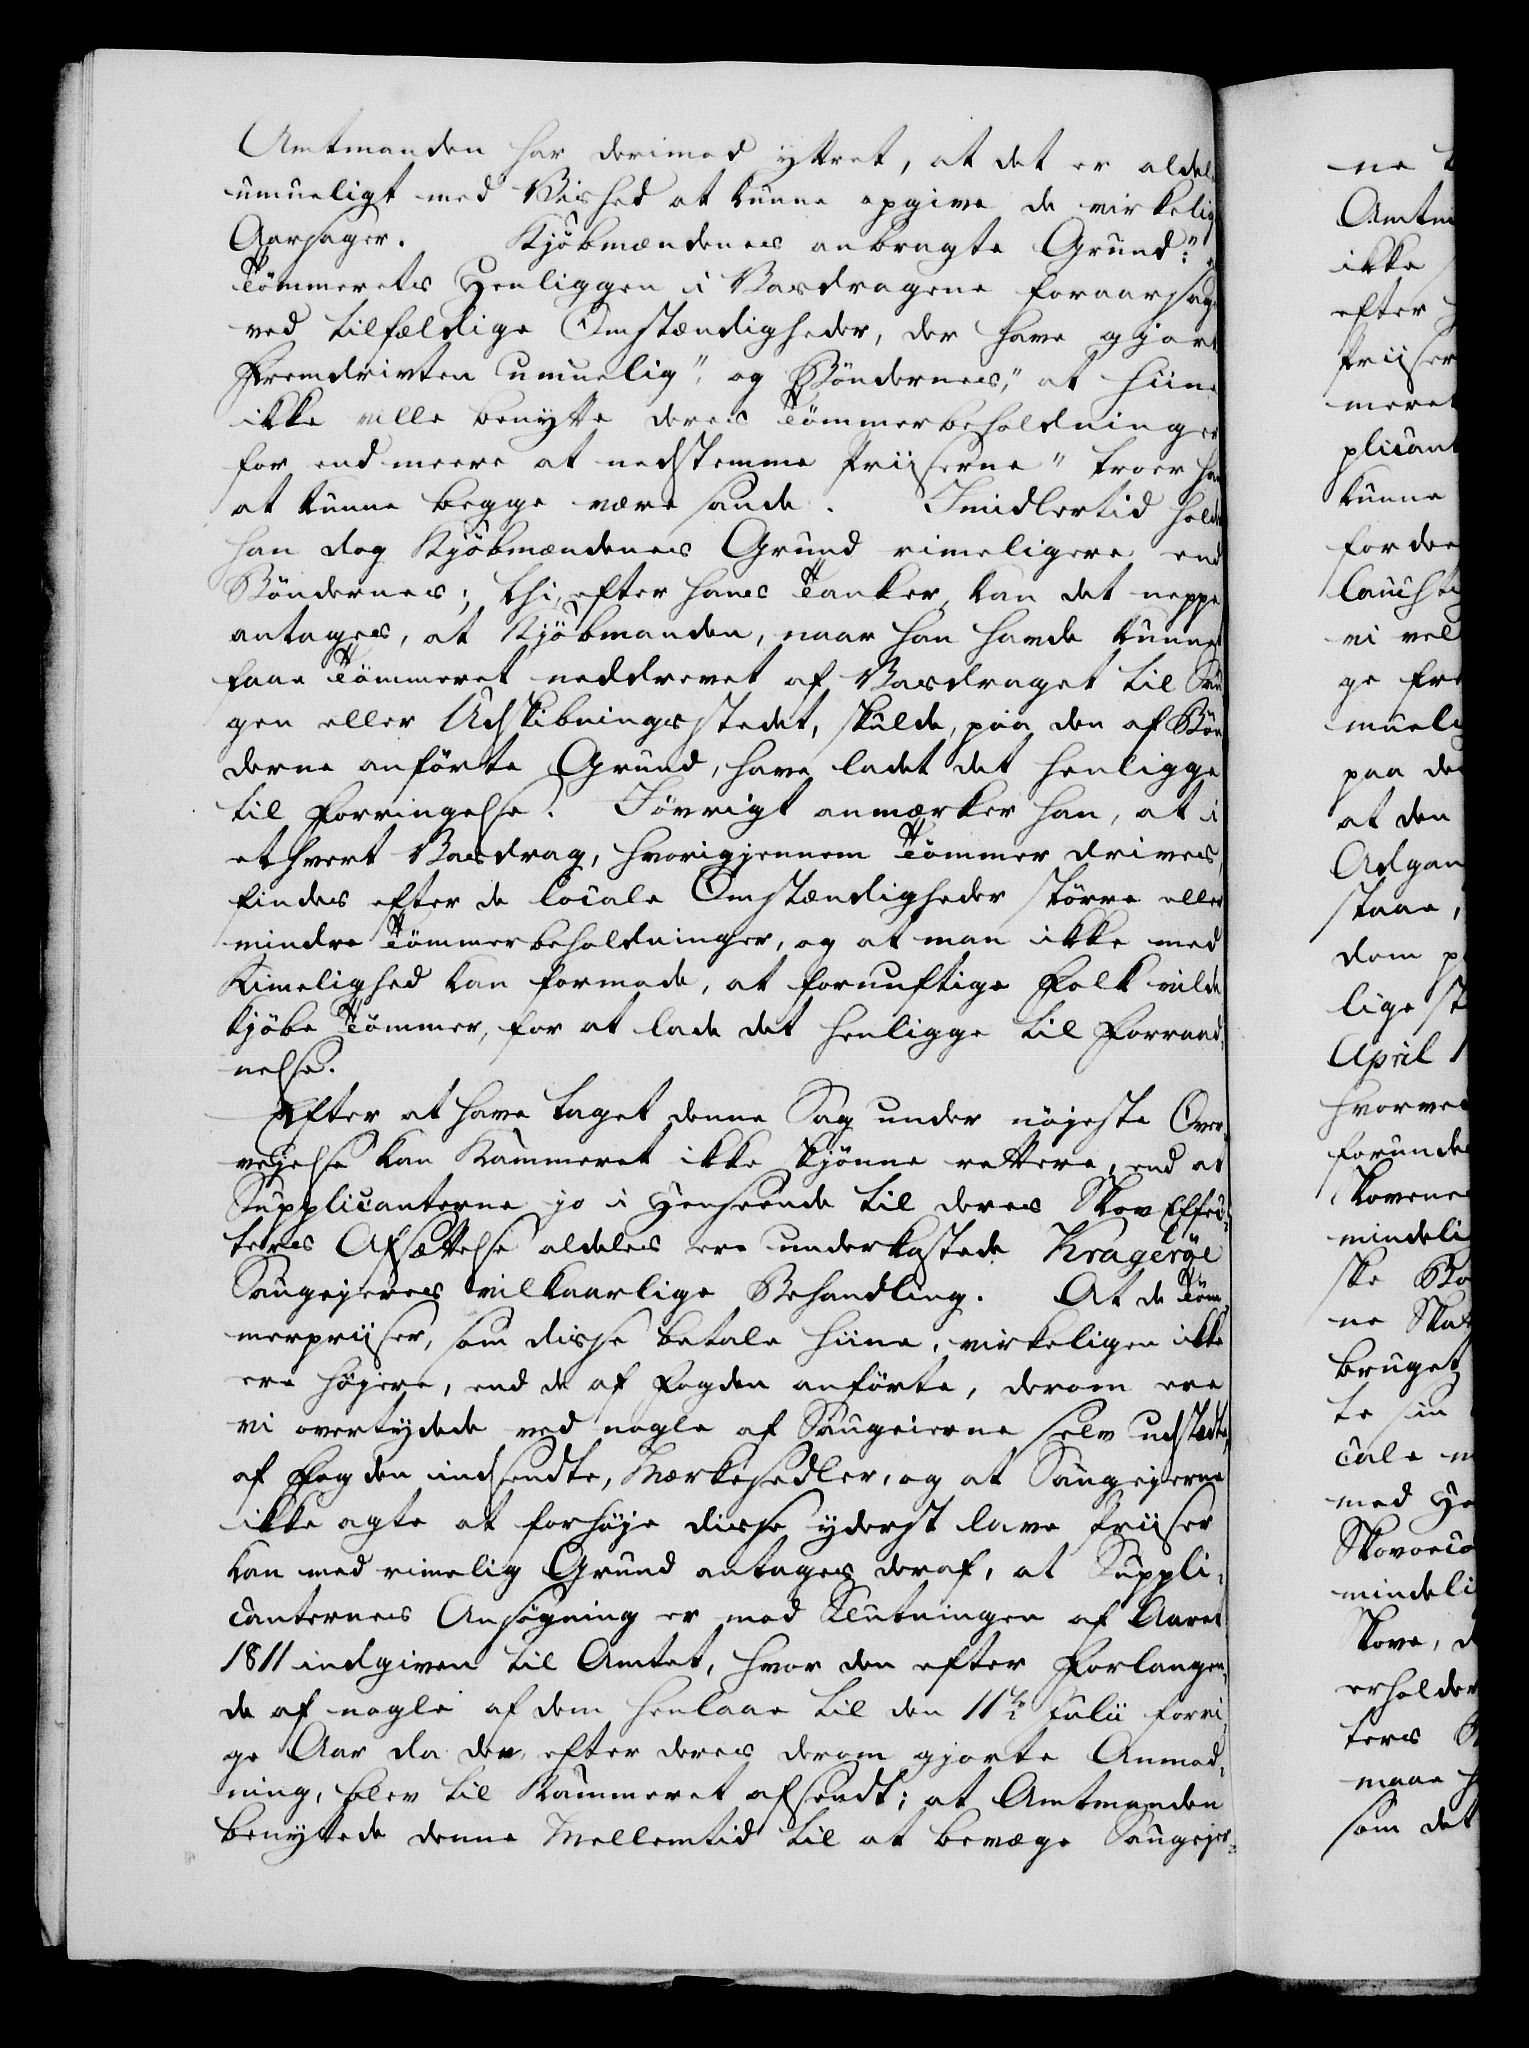 Amtmanden har derimod yttret, at det er aldel
umueligt med Vished at kunne opgive de virkelig
Aarsager. Kjöbmændenes anbragte Grund: "
Tömmerets Henliggen i Vasdragene foraarsage
ved tilfældige Omstændigheder, der have gjort
Fremdrivten umuelig", og Böndernes," at hiine
ikke ville benytte deres Tömmerbeholdninger
for end meere at nedstemme Priiserne" troer han
at kunne begge være sande. Imidlertid holde
han dog Kjöbmændenes Grund rimeligere end
Böndernes; thi, efter hans Tanker, kan det neppe
antages, at Kjöbmanden, naar han havde kunnet
faae Tömmeret neddrevet af Vasdraget til Sau
gen eller Udskibningsstedet, skulde, paa den af Bön
derne anförte Grund, have ladet det henligge
til Forringelse. Iövrigt anmærker han, at i
ethvert Vasdrag, hvorigjennem Tömmer drives,
findes efter de locale Omstændigheder större eller
mindre Tömmerbeholdninger, og at man ikke med
Rimelighed kan formode, at fornuftige Folk vilde
kjöbe Tömmer, for at lade det henligge til Forraad¬
nelse.
Efter at have taget denne Sag under nöjeste Over¬
vejelse kan Kammeret ikke skjönne rettere, end at
Supplicanterne jo i Henseende til deres Skov Effec¬
ters Afsættelse aldeles ere underkastede Kragerøe
Saugejeres vilkaarlige Behandling. At de Töm¬
merpriiser, som disse betale hiine, virkeligen ikke
ere højere, end de af Fogden anförte, derom ere
vi overtydede ved nogle af Saugeierne selv udstædte,
af Fogden indsendte, Mærkesedler, og at Saugejerne
ikke agte at forhøje disse yderst lave Priiser
kan med rimelig Grund antages deraf, at Suppli¬
canternes Ansøgning er mod Slutningen af Aaret
1811 indgiven til Amtet, hvor den efter Forlangen¬
de af nogle af dem henlaae til den 11te Julii forri¬
ge Aar da den, efter deres derom gjorte Anmod¬
ning, blev til Kammeret afsendt; at Amtmanden
benyttede denne Mellemtid til at bevæge Saugejer¬
ne
Amtm
ikke
efter
Priiser
meret
plicant
kunne
fordee
lauiste
vi vel
ge fre
mueli
paa de
at den
Adgan
staae,
dom p
lige st
April 1
hvorved
forunde
Skovene
mindeli
ske Bo
ne Ska
bruget
te sin
cale
med He
Skovoeco
mindeli
Skove, d
erholder
ters
maae h
som det